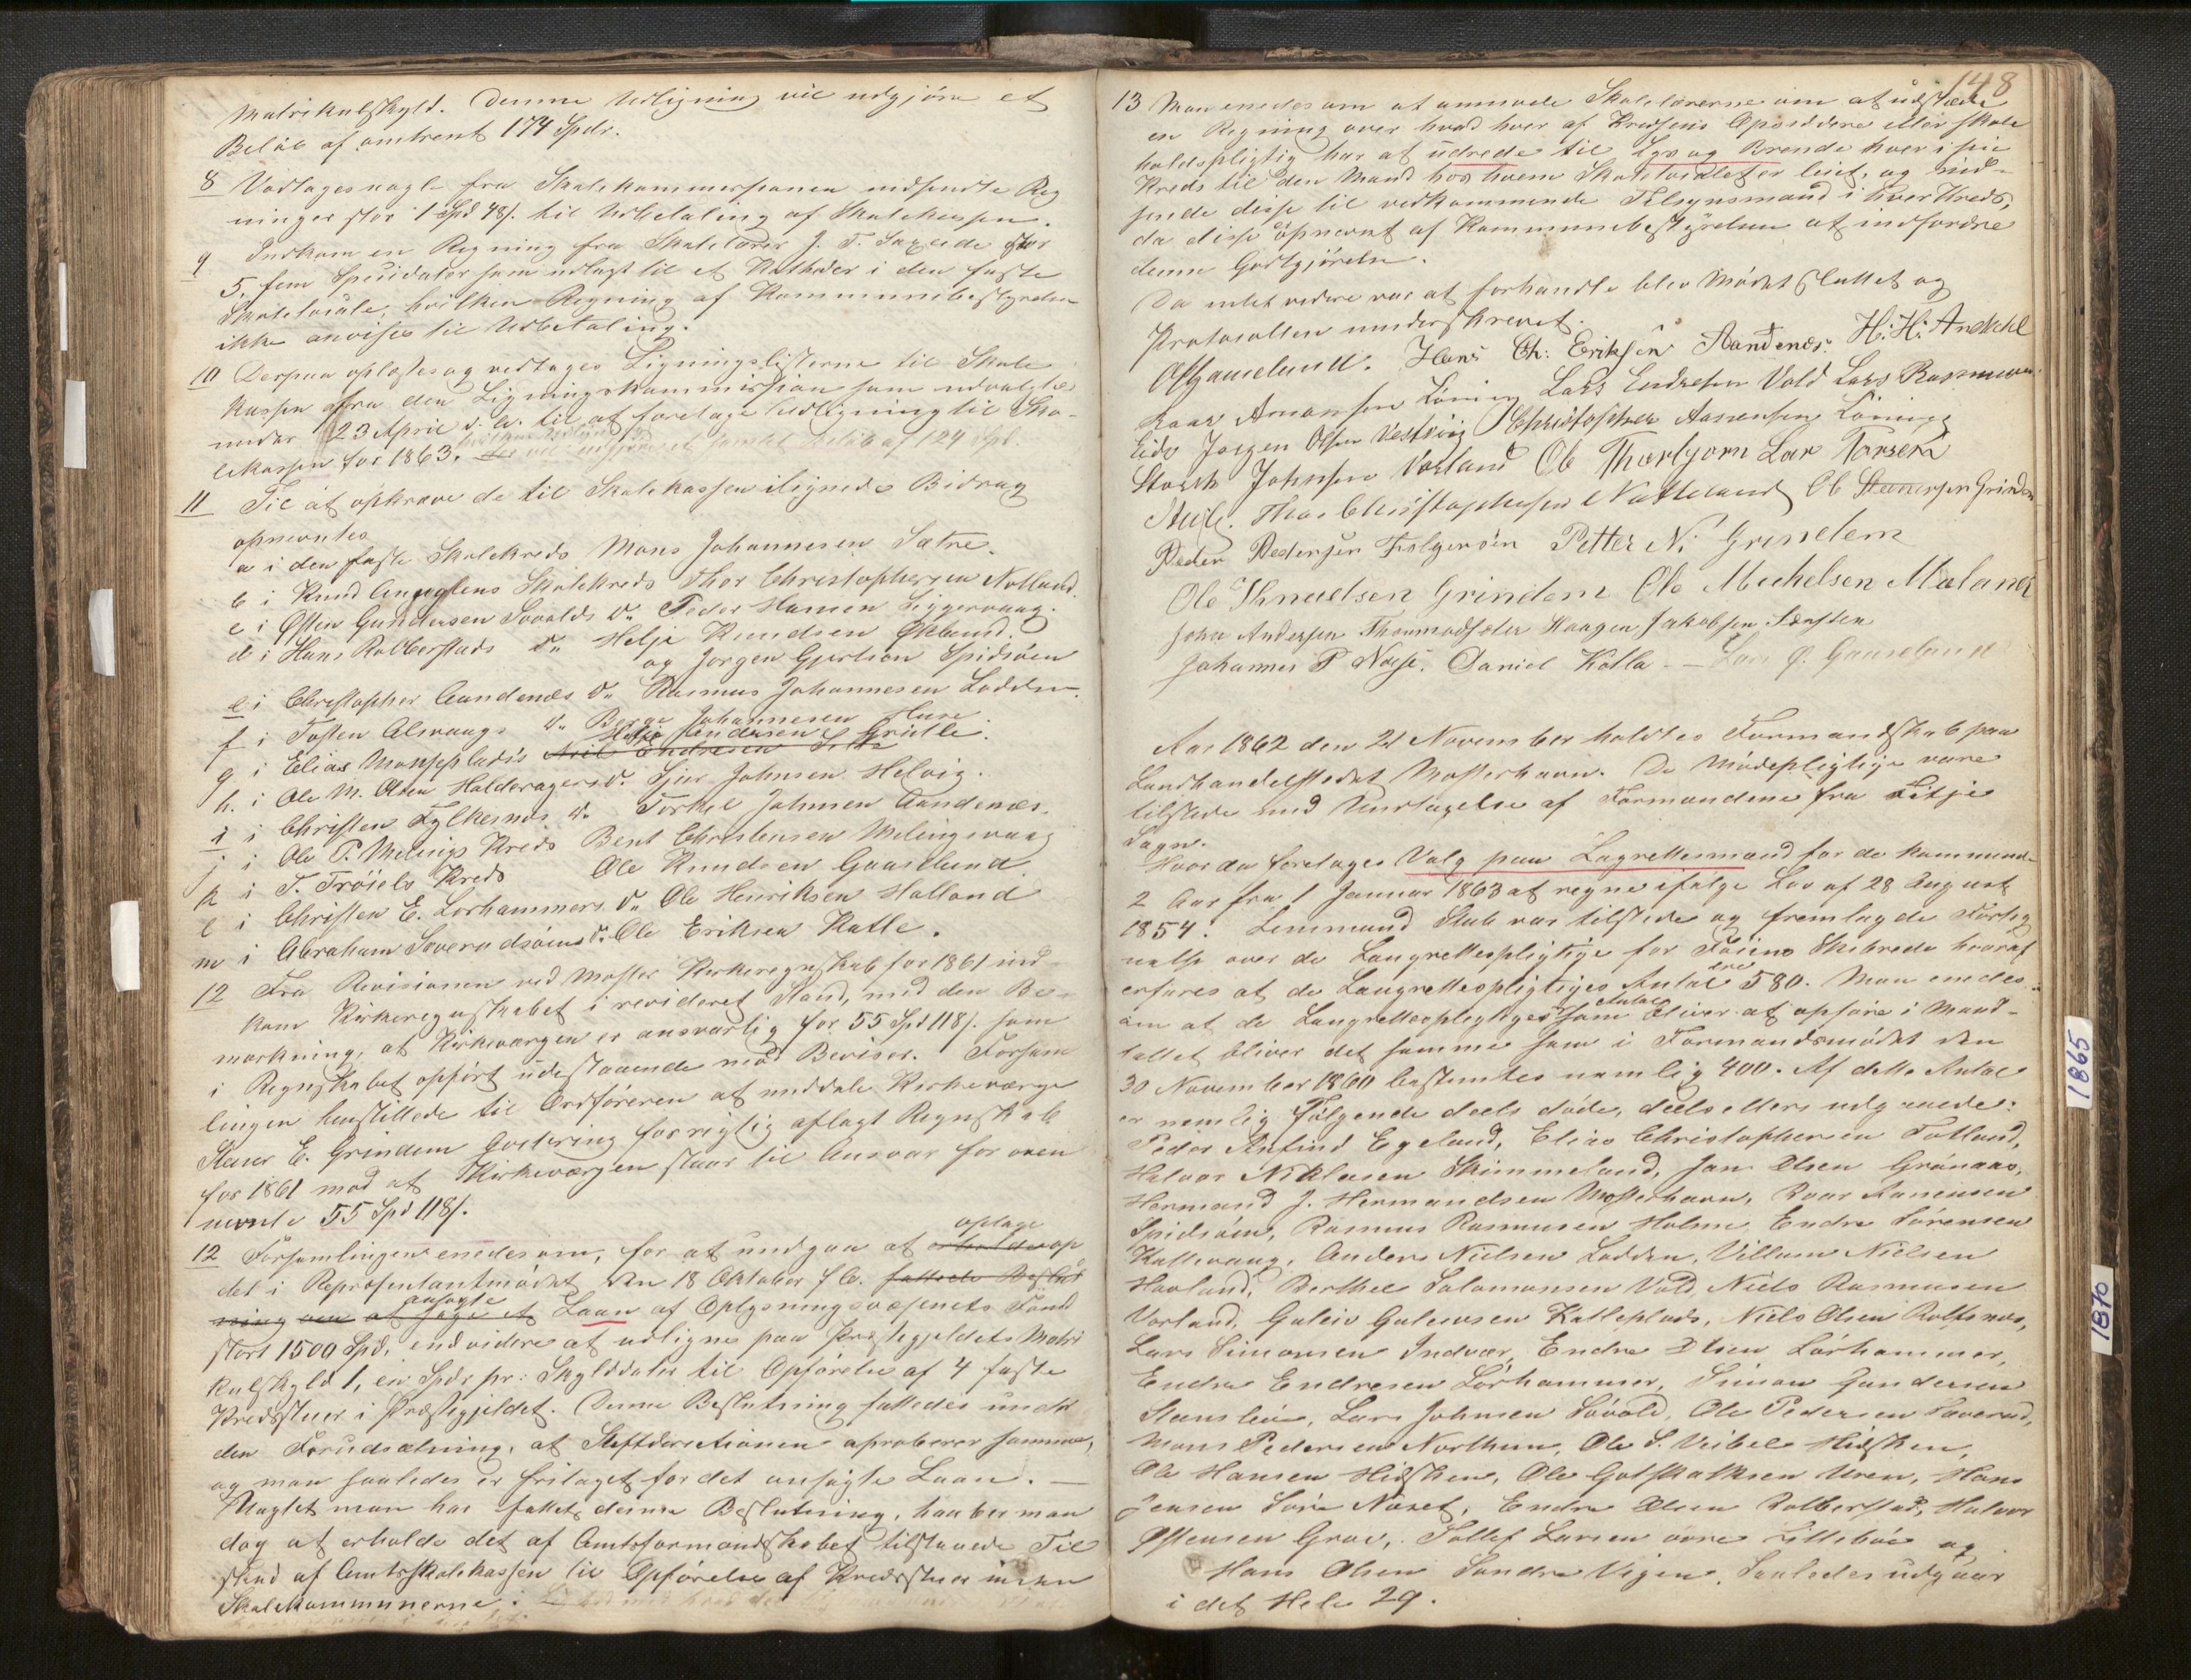 Matrikulskyld. Denne Udligning vil udgjøre et
Beløb af omtrent 174 Spdr.
8 Vedtages nogle fra Skolekommissionen indsendte Reg
ninger stor 1 Spd 48 s. til Udbetaling af Skolekassen.
9 Indkom en Regning fra Skolelærer J. T. stor
5, fem Speciedaler som udlagt til et Katheder i den faste
Skolelocale, hvilken Regning af Kommunebestyrelsen
ikke anvises til Udbetaling.
10 Derpaa oplæstes og vedtages Ligningslisterne til Skole
kassen fra den Ligningskommission som udvalgtes
under 23 April d. A. til at foretage Udligning til Sko-
lekassen for 1863.
11 Til at opkræve de til Skolekassen ilignede Bidrag
opnevntes
a i den faste Skolekreds Mons Johannesen Sætre.
b i Knud Skolekreds Thor Christophersen Notland.
c i Østen Gundersen Sovolds do Peder Hansen Siggervaag.
d i Hans Rolberstads do Helje Knudsen Økland.
og Jørgen Gjertsen Spidsøen
e i Christopher Aandenæs do Rasmus Johannesen Lodden.
f i Tosten Alsvaags do Børge Johannesen Huse.
Helje Andersen Grutle.
g i Elias Monsepladss Nils Endresen
h. i Ole M. Olsen Halderagers do Sjur Johnsen Helvig.
i i Christen Fylkesnes do Torkel Johnsen Aandenæs.
j i Ole P. Melings Kreds Bent Christensen Melingsvaag
k i T. Trøiels Kreds Ole Knudsen Gaasland
l i Christen E. Lorhammers do Ole Henriksen Halland
m i Abraham Soverudsøens do Ole Eriksen Katle.
12 Fra Revisionen ved Moster Kirkeregnskab for 1861 ind-
kom Kirkeregnskabet i revideret Stand, med den Be-
mærkning, at Kirkeværgen er ansvarlig for 55 Spd 118 s. som
i Regnskabet opført udestaaende mod Beviser. Forsam
lingen henstillede til Ordføreren at meddele Kirkeværge
E. Grindem Qvitering for rigtig aflagt Regnskab
for 1861 mod at Kirkeværgen staar til Ansvar for oven
nevnte 55 Spd 118 s.
12 Forsamlingen enedes om, for at undgaa at optage
det i Repræsentantmødet den 18 Oktober f A. fattede Beslut
ning om at søge et ansøgte Laan af Oplysningsvæsenets Fond
stort 1500 Spd, endvidere at udligne paa Præstegjeldets Matri
kulskyld 1, en Spdr pr: Skylddaler til Opførelse af 4 faste
Kredsstuer i Præstegjeldet. Denne Beslutning fattedes under
den Forudsætning, at Stiftdirectionen aproberer samme,
og man saaledes er fritaget for det ansøgte Laan. —
Uagtet man har fattet denne Beslutning, haaber man
dog at erholde det af Amtsformandskabet tilstaaede Til
skud af Amtsskolekassen til Opførelse af Kredsstuer inden
Skolekommunerne.
148
13 Man enedes om at anmode Skolelærerne om at udstæde
en Regning over hvad hver af Kredsens Opsiddere eller skole
holdspligtig har at udrede til Lys og Brende hver i sin
Kreds til den Mand hos hvem Skolelocalet er leiet, og ind-
sende disse til vedkommende Tilsynsmænd i hver Kreds,
da disse opnevnt af Kommunebestyrelsen at indfordre
denne Godtgjørelse.
Da intet videre var at forhandle blev Mødet sluttet og
Protocollen underskrevet.
Hans Ch: Eriksen Aandenæs. H: H: Andahl
Roar Amonsen Løning Lars Endresen Vold Lars Rasmusen
Eide Jørgen Olsen Vestvig Christopher Aanensen Løning
Storck Johnsen Vorland Ole Thorbjorn Lar Torsen
Thor Christophersen Nattland Ole Steenersen Grinden
Peder Pedersen Folgerøen Petter N. Grindem
Ole Knudtsen Grindem Ole Michelsen Mæland
John Andersen Thormodsæter Haagen Jakobsen
Johannes P Næse. Daniel Katla — Lars Ø. Gaaseland
Aar 1862 den 21 November holdtes Formandskab paa
Landhandelsstedet Mosterhavn. De Mødepligtige vare
tilstede med Undtagelse af Formændene fra Fitje
Sogn.
Hvorda foretages Valg paa Lagrettesmænd for de kommende
2 Aar fra 1 Januar 1863 at regne ifølge Lov af 28 August
1854. Lensmand Stub var tilstede og fremlagde Forteg
nelse over de Laugrettespligtige for Føiens Skibrede hvoraf
erfares at de Laugrettespligtiges Antal er 580. Man enedes
om at de Laugrettespligtiges Antal som bliver at opføre i Mand-
tallet bliver det samme som i Formandsmødet den
30 November 1860 bestemtes nemlig 400. Af dette Antal
er nemlig Følgende deels døde, deels ellers udgaaede:
Peder Anfind Egeland, Elias Christophersen Totland,
Halvor Niklasen Skimmeland, Jan Olsen Grønaas,
Hermand J. Hermandsen Mosterhavn, Roar Aanensen
Spidsøen, Rasmus Rasmusen Holme, Endre Sørensen
Kallevaag, Anders Nielsen Lodden, Villum Nielsen
Hovland, Berthel Salomonsen Vold, Niels Rasmusen
Vorland, Guleiv Guleivsen Katleplads, Niels Olsen Rolfsnes,
Lars Simonsen Indvær, Endre Olsen Lørhammer,
Endre Endresen Lørhammer, Simon Gundersen
Lars Johnsen Sovold, Ole Pedersen Soverud,
Mons Pedersen Northun, Ole S. Veibel Hidsken,
Ole Hansen Hidsken, Ole Gotskalksen Uren, Hans
Jensen Søre Næset, Endre Olsen Rolberstad, Halvor
Østensen Grov, Tollef Larsen øvre Littlebø og
Hans Olsen Søndre Vigen. Saaledes udgaar
i det Hele 29.
1865
1870